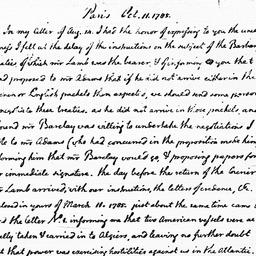 Paris Oct. 11. 1785.
In my letter of Aug. 14. I had the honor of expressing to you the uneas-
iness I felt at the delay of the instructions on the subject of the Barbary
treaties, of which mr Lamb was the bearer, & of informing you that I
had proposed to mr Adams that if he did not arrive either in the
French or English packets then expected, we should send some person
to negotiate these treaties. as he did not arrive in those packets, and
found mr Barclay was willing to undertake the negotiations I
wrote to mr Adams (who had concurred in the proposition made him)
informing him that mr Barclay would go, & proposing papers for
our immediate signature. the day before the return of the Courier
mr Lamb arrived, with our instructions, the letters of credence, &c.
inclosed in yours of March 11. 1785. just about the same time came
the letter No. 2. informing me that two American vessels were ac-
tually taken & carried in to Algiers, and leaving no further doubt
that that power was exercising hostilities against us in the Atlantic.